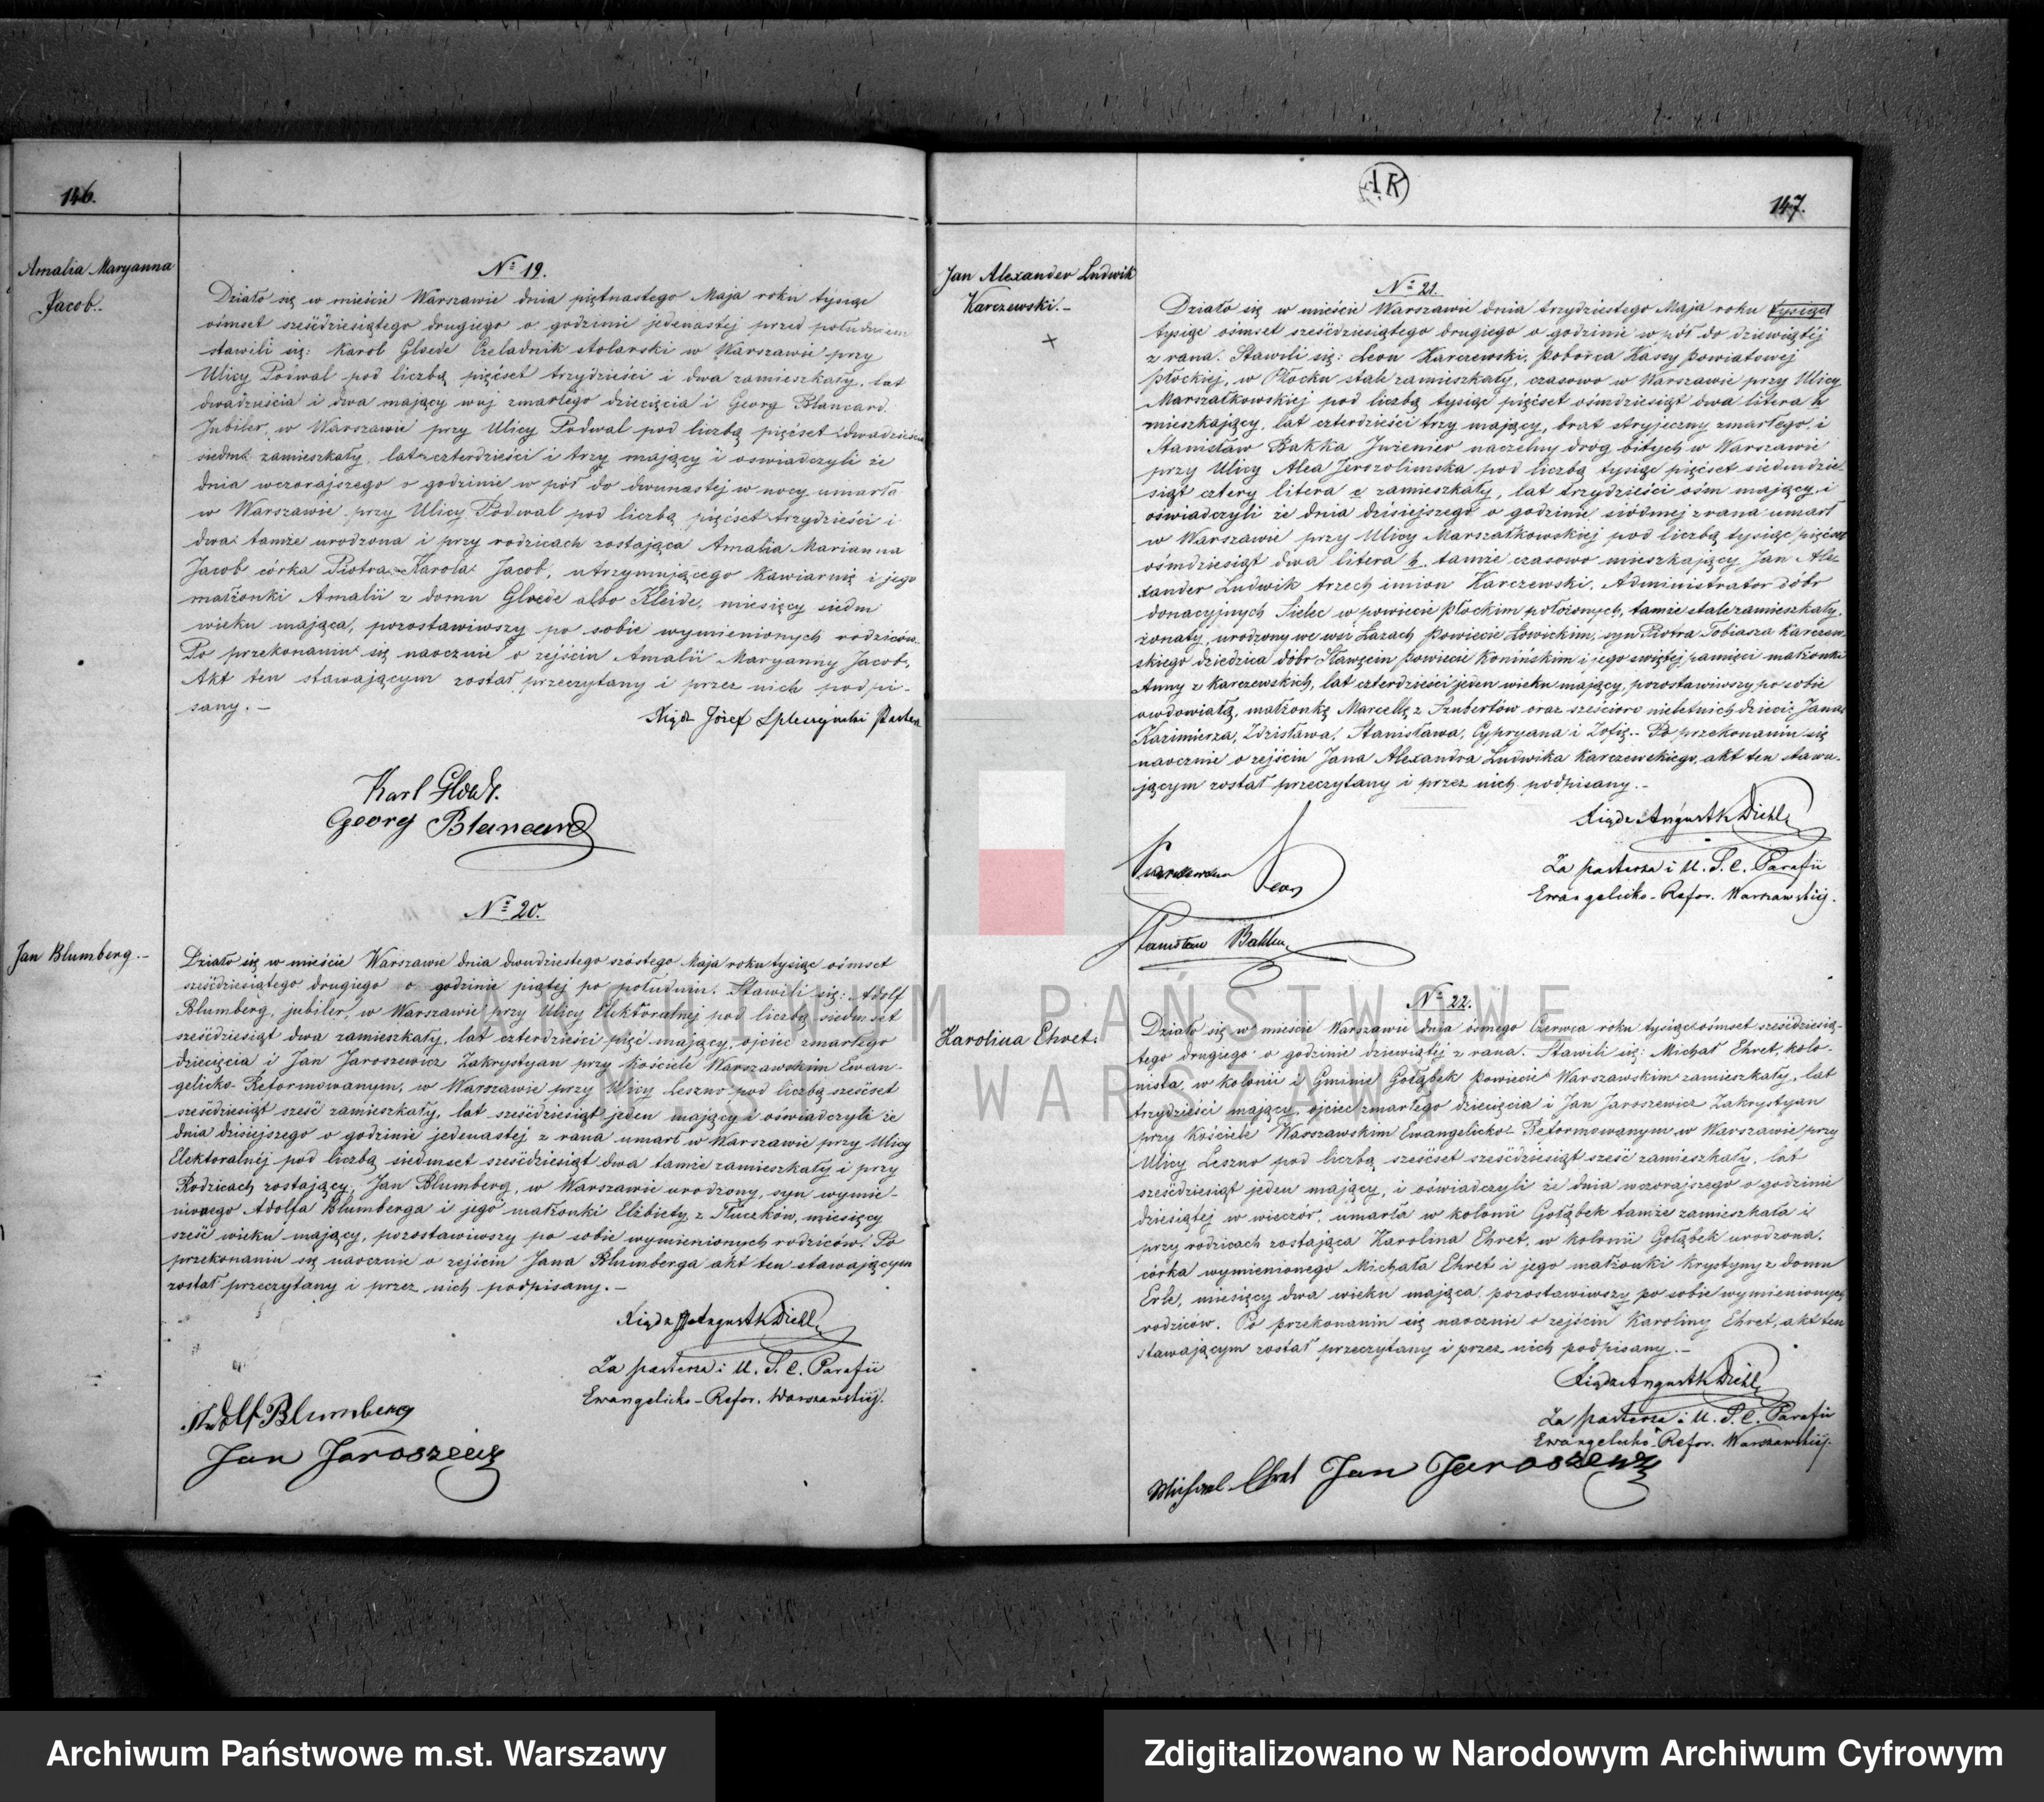 146.
Amalia Maryanna
Jacob.
№ 19.
Działo się w mieście Warszawie dnia piętnastego Maja roku tysiąc
ośmset sześćdziesiątego drugiego o godzinie jedenastej przed południem
stawili się: Karol Gloede Czeladnik stolarski w Warszawie przy
Ulicy Podwal pod liczbą pięćset trzydzieści i dwa zamieszkały, lat
dwadzieścia i dwa mający wuj zmarłego dziecięcia i Georg Blancard
Jubiler, w Warszawie przy Ulicy Podwal pod liczbą pięćset dwadzieścia
siedm zamieszkały, lat czterdzieści i trzy mający i oswiadczyli że
dnia wczorajszego o godzinie w pół do dwunastej w nocy umarła
w Warszawie przy Ulicy Podwal pod liczbą pięćset trzydzieści i
dwa tamże urodzona i przy rodzicach zostająca Amalia Marianna
Jacob córka Piotra Karola Jacob, utrzymującego kawiarnię i jego
małżonki Amalii z domu Gloede albo Kleide, miesięcy siedm
wieku mająca, pozostawiwszy po sobie wymienionych rodziców.
Po przekonaniu się naocznie o zejściu Amalii Maryanny Jacob,
Akt ten stawającym został przeczytany i przez nich podpi-
sany. —
Xiądz Józef Spleszyński Pastor
Karl Gloede.
Georg Blancard
Jan Blumberg. —
№ 20.
Działo się w mieście Warszawie dnia dwudziestego szóstego Maja roku tysiąc ośmset
sześćdziesiątego drugiego o godzinie piątej po południu. Stawili się: Adolf
Blumberg, jubiler, w Warszawie przy Ulicy Elektoralnej pod liczbą siedmset
sześćdziesiąt dwa zamieszkały, lat czterdzieści pięć mający, ojciec zmarłego
dziecięcia i Jan Jaroszewicz Zakrystyan przy Kościele Warszawskim Ewan-
gelicko-Reformowanym, w Warszawie przy Ulicy Leszno pod liczbą sześćset
sześćdziesiąt sześć zamieszkały, lat sześćdziesiąt jeden mający i oświadczyli że
dnia dzisiejszego o godzinie jedenastej z rana umarł w Warszawie przy Ulicy
Elektoralnéj pod liczbą siedmset sześćdziesiąt dwa tamże zamieszkały i przy
Rodzicach zostający, Jan Blumberg, w Warszawie urodzony, syn wymie-
nionego Adolfa Blumberga i jego małżonki Elżbiety z Tłuczków, miesięcy
sześć wieku mający, pozostawiwszy po sobie wymienionych rodziców. Po
przekonaniu się naocznie o zejściu Jana Blumberga akt ten stawającym
został przeczytany i przez nich podpisany. —
Xiądz August K Diehl
Za pasterza i U. S. C. Parafii
Ewangelicko-Refor. Warszawskiej.
Adolf Blumberg
Jan Jaroszewicz
AR
147.
Jan Alexander Ludwik
Karczewski. —
+
№ 21.
Działo się w mieście Warszawie dnia trzydziestego Maja roku tysiąc
tysiąc ośmset sześćdziesiątego drugiego o godzinie w pół do dziewiątej
z rana. Stawili się: Leon Karczewski, Poborca Kassy Powiatowej
Płockiej, w Płocku stale zamieszkały, czasowo w Warszawie przy Ulicy
Marszałkowskiej pod liczbą tysiąc pięćset ośmdziesiąt dwa litera h
mieszkający, lat czterdzieści trzy mający, brat stryjeczny zmarłego, i
Stanisław Bakka Inżenier naczelny dróg bitych w Warszawie
przy Ulicy Alea Jerozolimska pod liczbą tysiąc pięćset siedmdzie-
siąt cztery litera e zamieszkały, lat trzydzieści ośm mający, i
oświadczyli że dnia dzisiejszego o godzinie siódmej z rana umarł
w Warszawie przy Ulicy Marszałkowskiej pod liczbą tysiąc pięćset
ośmdziesiąt dwa litera h. tamże czasowo mieszkający Jan Ale-
xander Ludwik trzech imion Karczewski, Administrator dóbr
donacyjnych Sielec w powiecie płockim położonych, tamże stale zamieszkały,
żonaty, urodzony we wsi Łazach Powiecie Łowickim, syn Piotra Tobiasza Karczew-
skiego dziedzica dóbr Sławęcin Powiecie Konińskim i jego świętej pamięci małżonki
Anny z Karczewskich, lat czterdzieści jeden wieku mający, pozostawiwszy po sobie
owdowiałą małżonkę Marcellę z Szubertów oraz sześcioro nieletnich dzieci: Jana
Kazimierza, Zdzisława, Stanisława, Cypryana i Zofię. — Po przekonaniu się
naocznie o zejściu Jana Alexandra Ludwika Karczewskiego, akt ten stawa-
jącym został przeczytany i przez nich podpisany. —
Xiądz August K Diehl
Za pasterza i U. S. C. Parafii
Ewangelicko-Refor. Warszawskiej.
Karczewski Leon
Stanisław Bakka
Karolina Ehret.
№ 22.
Działo się w mieście Warszawie dnia ósmego Czerwca roku tysiąc ośmset sześćdziesią-
tego drugiego o godzinie dziewiątej z rana. Stawili się: Michał Ehret, kolo-
nista, w kolonii i Gminie Gołąbek Powiecie Warszawskim zamieszkały, lat
trzydzieści mający, ojciec zmarłego dziecięcia i Jan Jaroszewicz Zakrystyan
przy Kościele Warszawskim Ewangelicko-Reformowanym w Warszawie przy
Ulicy Leszno pod liczbą sześćset sześćdziesiąt sześć zamieszkały, lat
sześćdziesiąt jeden mający, i oświadczyli że dnia wczorajszego o godzinie
dziesiątej w wieczór, umarła w kolonii Gołąbek tamże zamieszkała i
przy rodzicach zostająca Karolina Ehret, w kolonii Gołąbek urodzona,
córka wymienionego Michała Ehret i jego małżonki Krystyny z domu
Erle, miesięcy dwa wieku mająca, pozostawiwszy po sobie wymienionych
rodziców. Po przekonaniu się naocznie o zejściu Karoliny Ehret, akt ten
stawającym został przeczytany i przez nich podpisany. —
Xiądz August K Diehl
Za pasterza i U. S. C. Parafii
Ewangelicko-Refor. Warszawskiej.
Michael Ehret Jan Jaroszewicz
ARCHIWUM PAŃSTWOWE
WARSZAWY
Archiwum Państwowe m.st. Warszawy
Zdigitalizowano w Narodowym Archiwum Cyfrowym